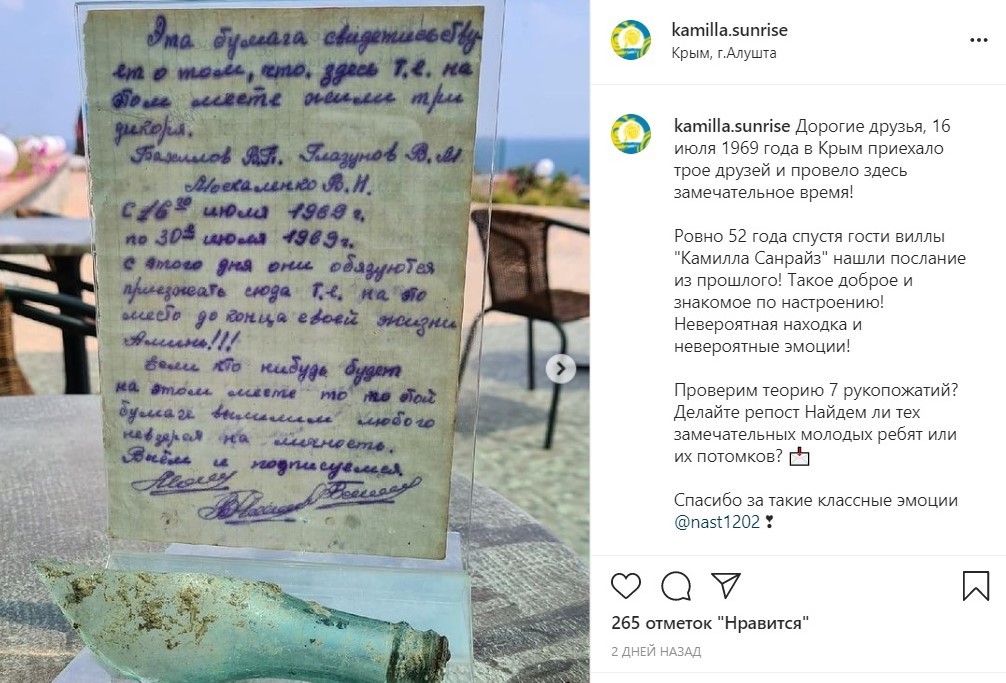 Эта бумага свидетельству-
ет о том, что. здесь т.е. на
этом месте жили три
дикаря.
Глазунов В.М.
Москаленко В.И.
С 16го июля 1969 г.
по 30е июля 1969г.
с этого дня они обязуются
приезжать сюда т.е. на это
место до конца своей жизни
Аминь!!!
Если кто нибудь будет
на этом месте то по этой
бумаге выселим любого
невзирая на личность.
Внём и подписуемся
kamilla.sunrise
Крым, г.Алушта
kamilla.sunrise Дорогие друзья, 16
июля 1969 года в Крым приехало
трое друзей и провело здесь
замечательное время!
Ровно 52 года спустя гости виллы
"Камилла Санрайз" нашли послание
из прошлого! Такое доброе и
знакомое по настроению!
Невероятная находка и
невероятные эмоции!
Проверим теорию 7 рукопожатий?
Делайте репост Найдем ли тех
замечательных молодых ребят или
их потомков? 📩
Спасибо за такие классные эмоции
@nast1202 ❣
265 отметок "Нравится"
2 ДНЕЙ НАЗАД